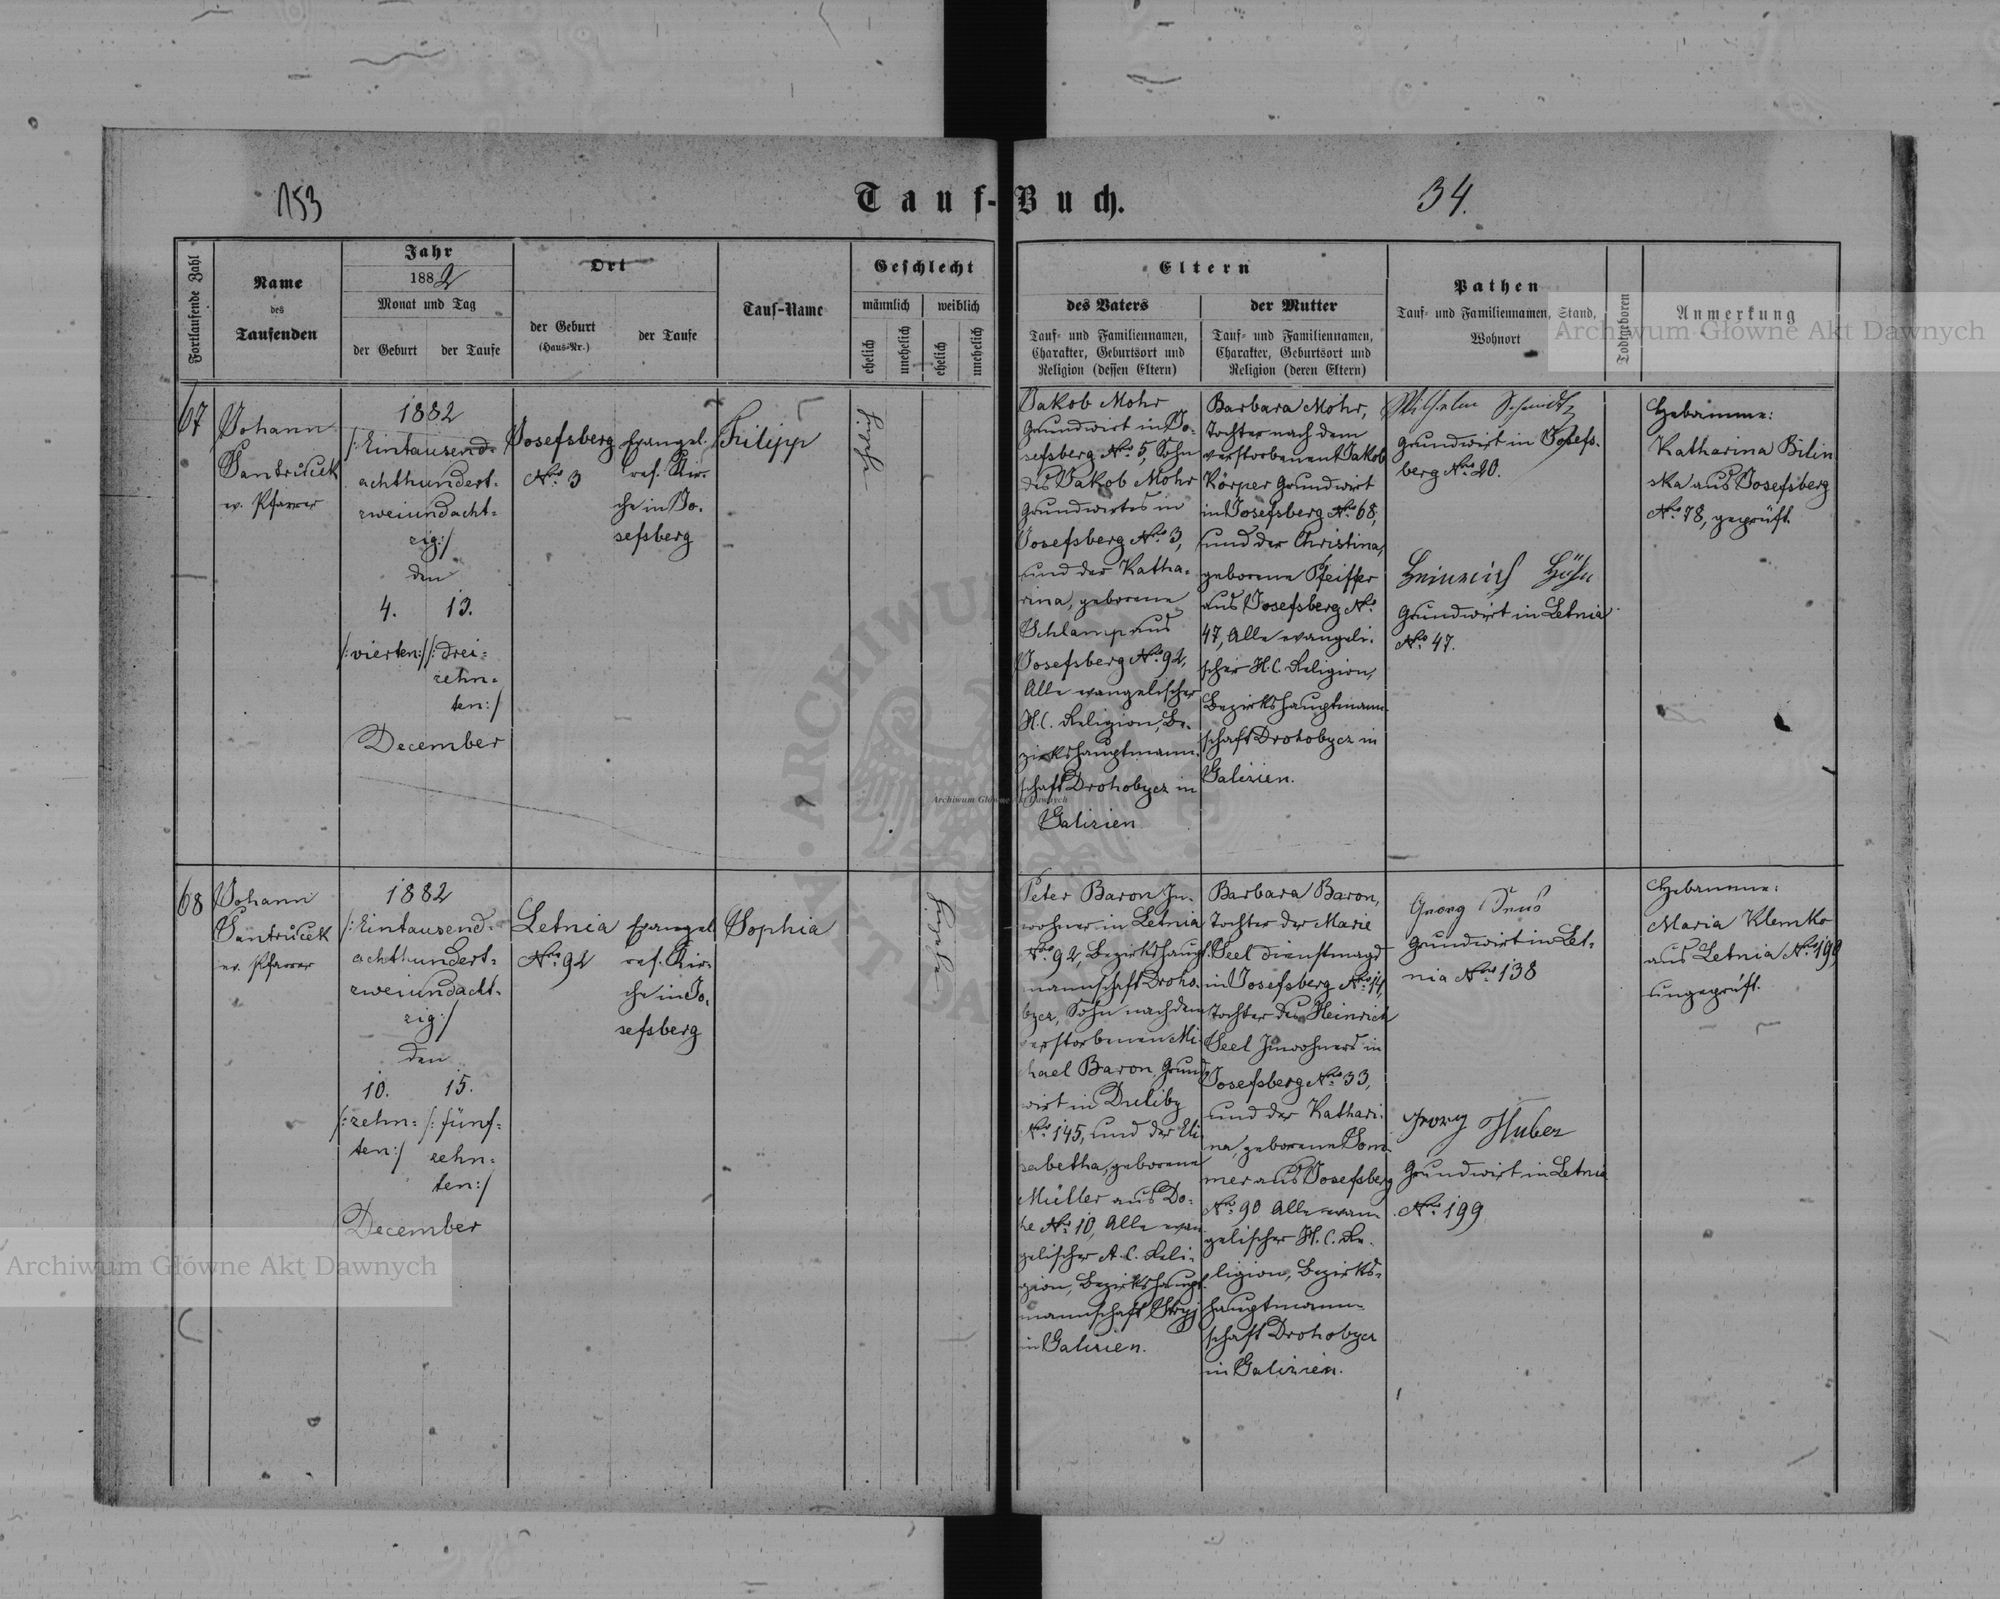 153
Tauf-Buch.
34.
Fortlaufende Zahl
Name
des
Taufenden
Jahr
1882
Monat und Tag
der Geburt
der Taufe
Ort
der Geburt
(Haus-Nr.)
der Taufe
Tauf-Name
Geschlecht
männlich
weiblich
ehelich
unehelich
ehelich
unehelich
Eltern
des Vaters
Tauf- und Familiennamen,
Charakter, Geburtsort und
Religion (dessen Eltern)
der Mutter
Tauf- und Familiennamen,
Charakter, Geburtsort und
Religion (deren Eltern)
Pathen
Tauf- und Familiennamen, Stand,
Wohnort
Todtgeboren
Anmerkung
67
Johann
ev. Pfarrer
1882
/:Eintausend-
achthundert-
zweiundacht-
zig:/
den
4. 13.
/:vierten:/ /:drei-
zehn-
ten:/
December
Josefsberg
No. 3
Evangel.
ref. Kir-
che in Jo-
sefsberg
Filipp
Ehelich
Jakob Mohr
Grundwirt in Jo-
sefsberg No. 5, Sohn
des Jakob Mohr
Grundwirtes in
Josefsberg No. 3,
und der Katha-
rina, geborene
Schlamp aus
Josefsberg No. 92,
Alle evangelischer
H.C. Religion, Be-
zirkshauptmann-
schaft Drohobycz in
Galizien.
Barbara Mohr,
Tochter nach dem
verstorbenen Jakob
Körper Grundwirt
in Josefsberg No. 68,
und der Christina,
geborene Pfeiffer
aus Josefsberg No.
47, Alle evangeli-
scher H.C. Religion,
Bezirkshauptmann-
schaft Drohobycz in
Galizien.
Wilhelm Schmidt
Grundwirt in Josefs-
berg No. 20.
Heinrich Höhn
Grundwirt in Letnia
No. 47.
Hebamme:
Katharina Bilin
ska aus Josefsberg
No. 78, geprüft.
68
Johann
ev. Pfarrer
1882
/:Eintausend-
achthundert-
zweiundacht-
zig:/
den
10. 15.
/:zehn- /:fünf-
ten:/ zehn-
ten:/
December
Letnia
No. 92
Evangel.
ref. Kir-
che in Jo-
sefsberg
Sophia
Ehelich
Peter Baron In-
wohner in Letnia
No. 92, Bezirkshaupt-
mannschaft Droho-
bycz, Sohn nach dem
verstorbenen Mi-
chael Baron, Grund-
wirt in Duliby
No. 145, und der Eli-
sabetha, geborene
Müller aus Do-
No. 10, Alle evan-
gelischer A.C. Reli-
gion, Bezirkshaupt-
mannschaft Stryj
in Galizien.
Barbara Baron,
Tochter der Marie
Seel Dienstmagd
in Josefsberg No. 14,
Tochter des Heinrich
Seel Inwohners in
Josefsberg No. 33,
und der Kathari-
na, geborene Som-
mer aus Josefsberg
No. 90 Alle evan-
gelischer H.C. Re-
ligion, Bezirks-
hauptmann-
schaft Drohobycz
in Galizien.
Georg
Grundwirt in Let-
nia No. 138
Georg Huber
Grundwirt in Letnia
No. 199
Hebamme:
Maria Klemko
aus Letnia No. 199
ungeprüft.
Archiwum Główne Akt Dawnych
Archiwum Główne Akt Dawnych
Archiwum Główne Akt Dawnych